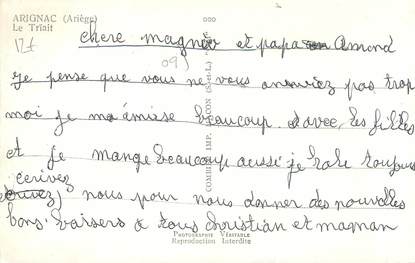 ARIGNAC (Ariège)
Le Trïait
12f
09
chere magneo et papa Amond
je pense que vous ne vous annuiez pas trop
moi je m'amiese beaucoup. davec les filles
et je mange beaucoup aussi je hale toujours
écrivez
nous pour nous donner des nouvelles
bons baisers a tous christian et maman
COMBIER IMP. MACON (S.-et-L.)
PHOTOGRAPHIE VÉRITABLE
Reproduction Interdite